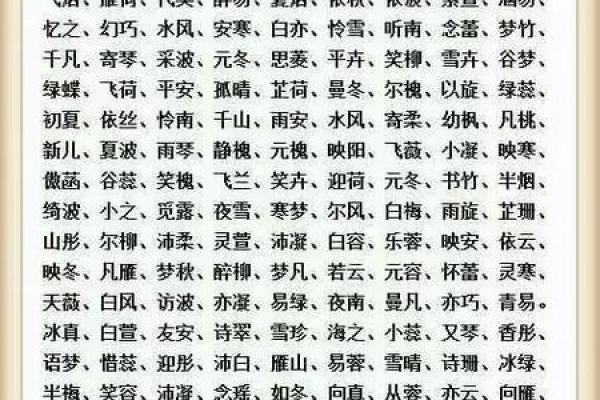 忆之、幻巧、水风、安寒、白亦、怜雪、听南、念蕾、梦竹、
千凡、寄琴、采波、元冬、思菱、平卉、笑柳、雪卉、谷梦、
绿蝶、飞荷、平安、孤晴、芷荷、曼冬、尔槐、以旋、绿蕊、
初夏、依丝、怜南、千山、雨安、水风、寄柔、幼枫、凡桃、
新儿、夏波、雨琴、静槐、元槐、映阳、飞薇、小凝、映寒、
傲菡、谷蕊、笑槐、飞兰、笑卉、迎荷、元冬、书竹、半烟、
绮波、小之、觅露、夜雪、寒梦、尔风、白梅、雨旋、芷珊、
山彤、尔柳、沛柔、灵萱、沛凝、白容、乐蓉、映安、依云、
映冬、凡雁、梦秋、醉柳、梦凡、若云、元容、怀蕾、灵寒、
天薇、白风、访波、亦凝、易绿、夜南、曼凡、亦巧、青易。
冰真、白萱、友安、诗翠、雪珍、海之、小蕊、又琴、香彤、
语梦、惜蕊、迎彤、沛白、雁山、易蓉、雪晴、诗珊、冰绿、
半梅、笑容、沛凝、念瑶、如冬、向真、从蓉、亦云、向雁、